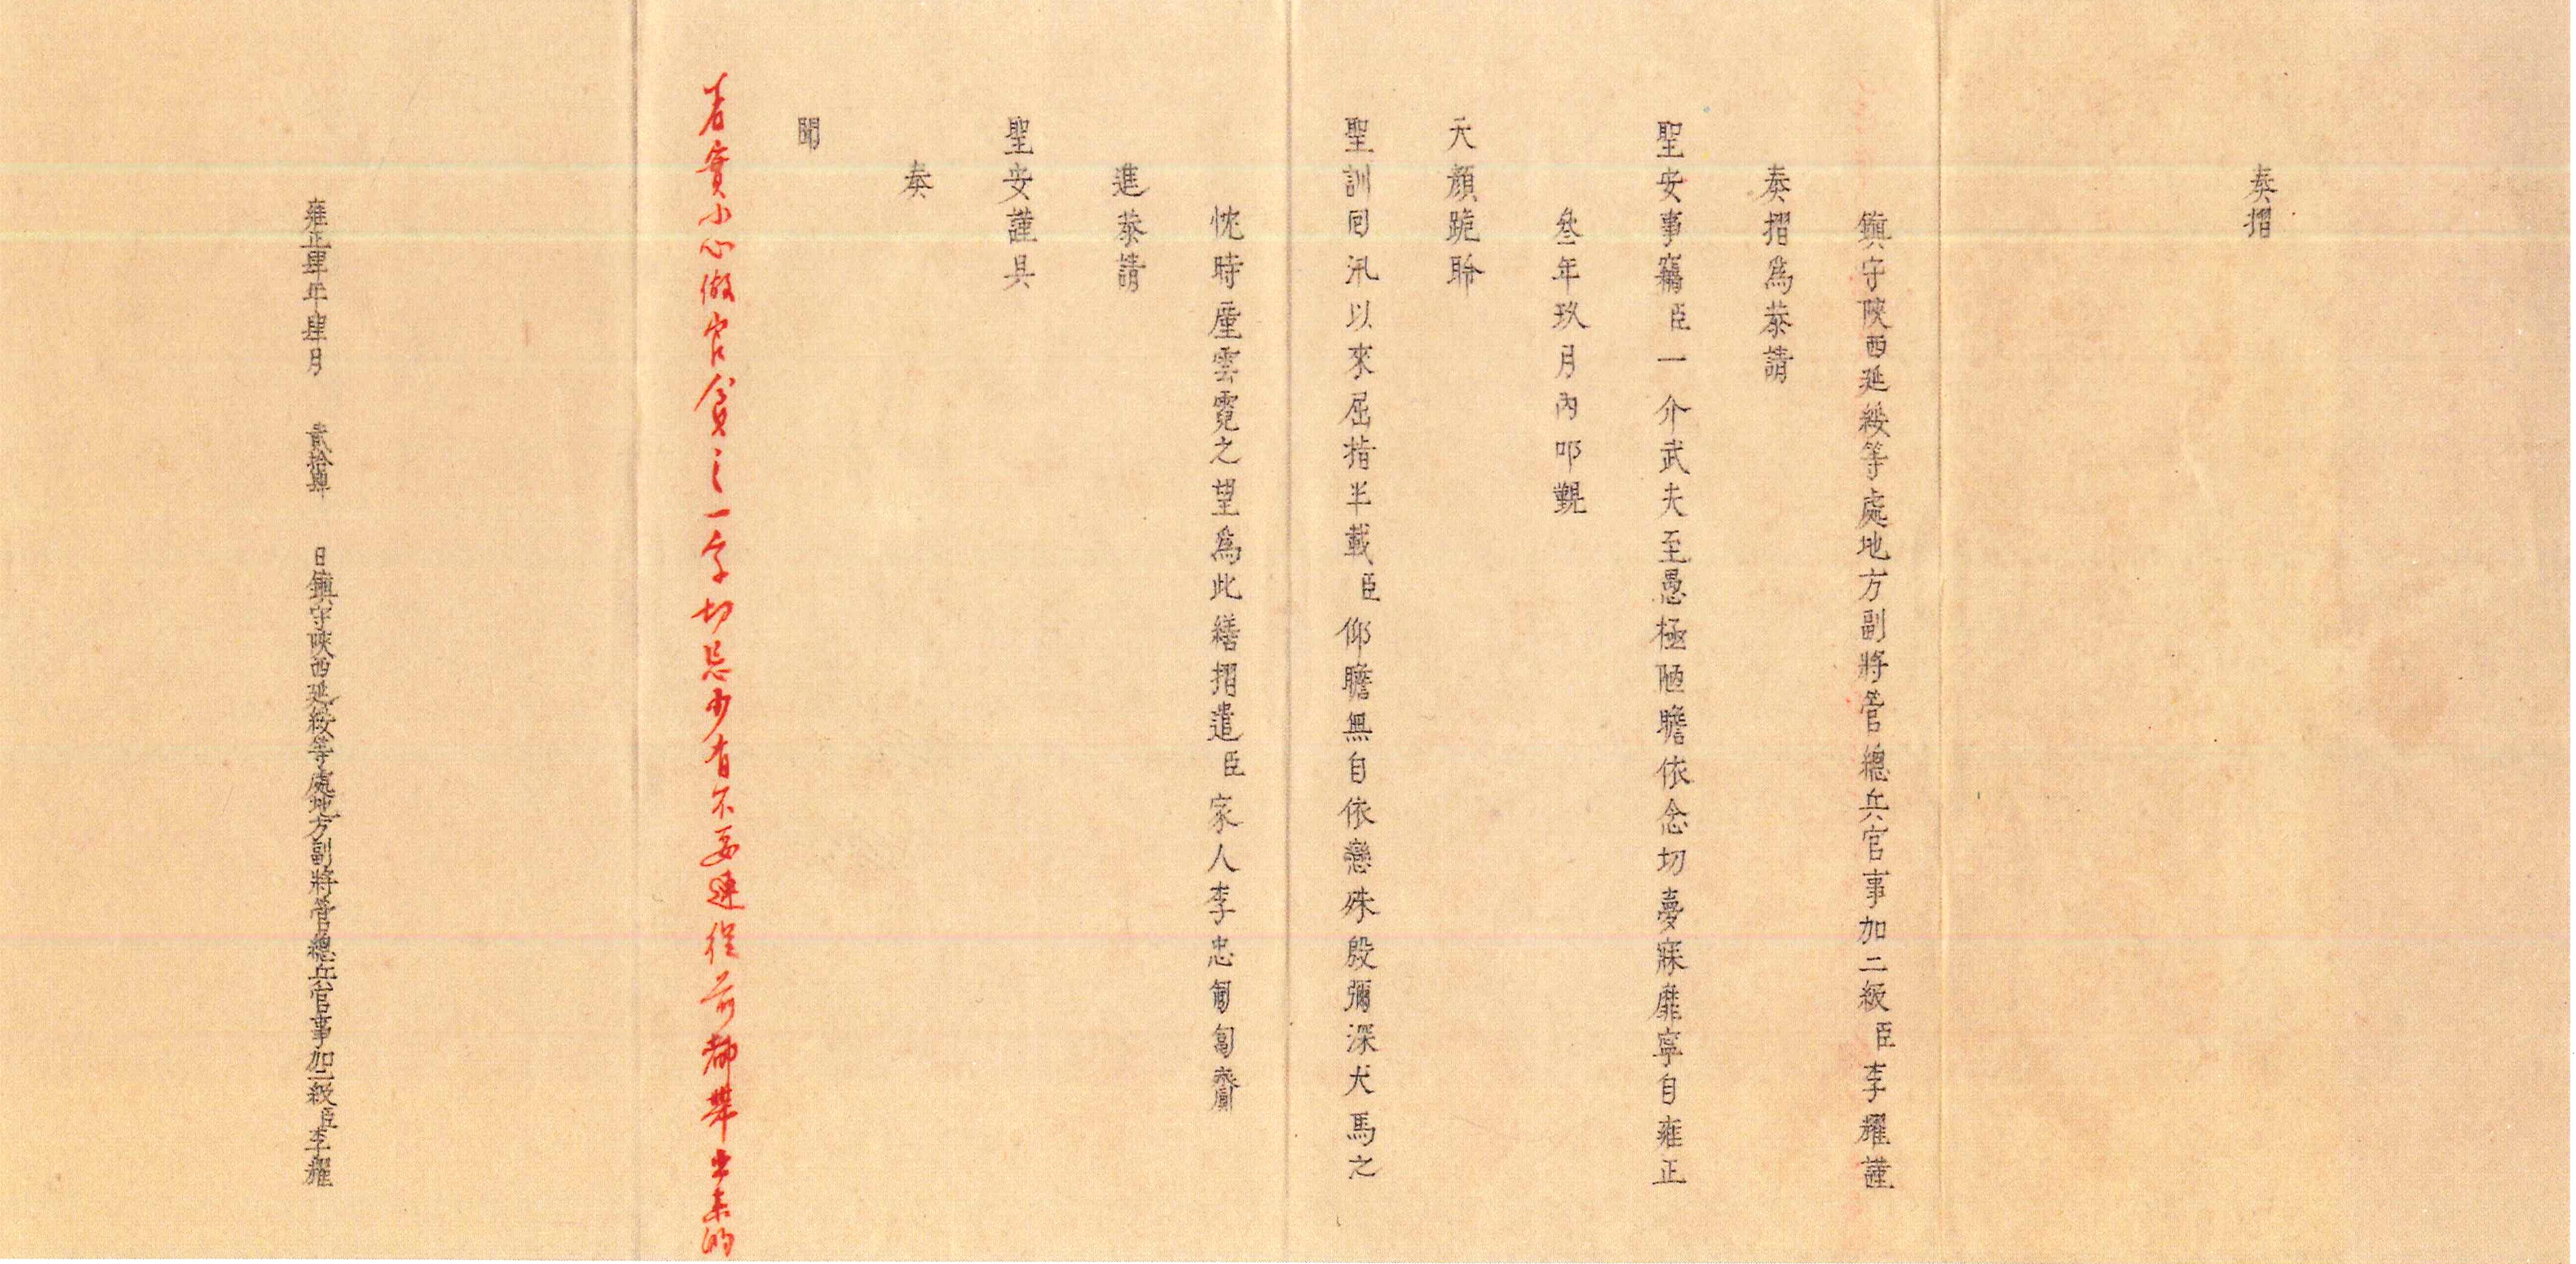 奏摺
鎮守陝西延綏等處地方副將管總兵官事加二級臣李耀謹
奏摺爲恭請
聖安事竊臣一介武夫至愚極陋瞻依念切夢寐靡寧自雍正
叄年玖月內叩覲
天顏跪聆
聖訓回汛以來屈指半載臣仰瞻無自依戀殊殷彌深犬馬之
忱時厪雲霓之望爲此繕摺遣臣家人李忠匍匐齎
進恭請
聖安謹具
奏
聞
着實小心做官貪之一字切忌少有不妥連從前都舉出來的
雍正肆年肆月貳拾肆日鎮守陝西延綏等處地方副將管總兵官事加二級臣李耀